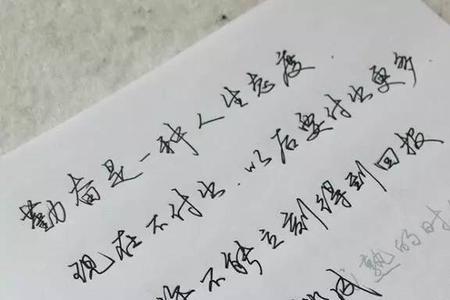 勤奋是一种人生态度.
现在不付出.以后要付出更多
不能立刻得到回报
熟的时
成